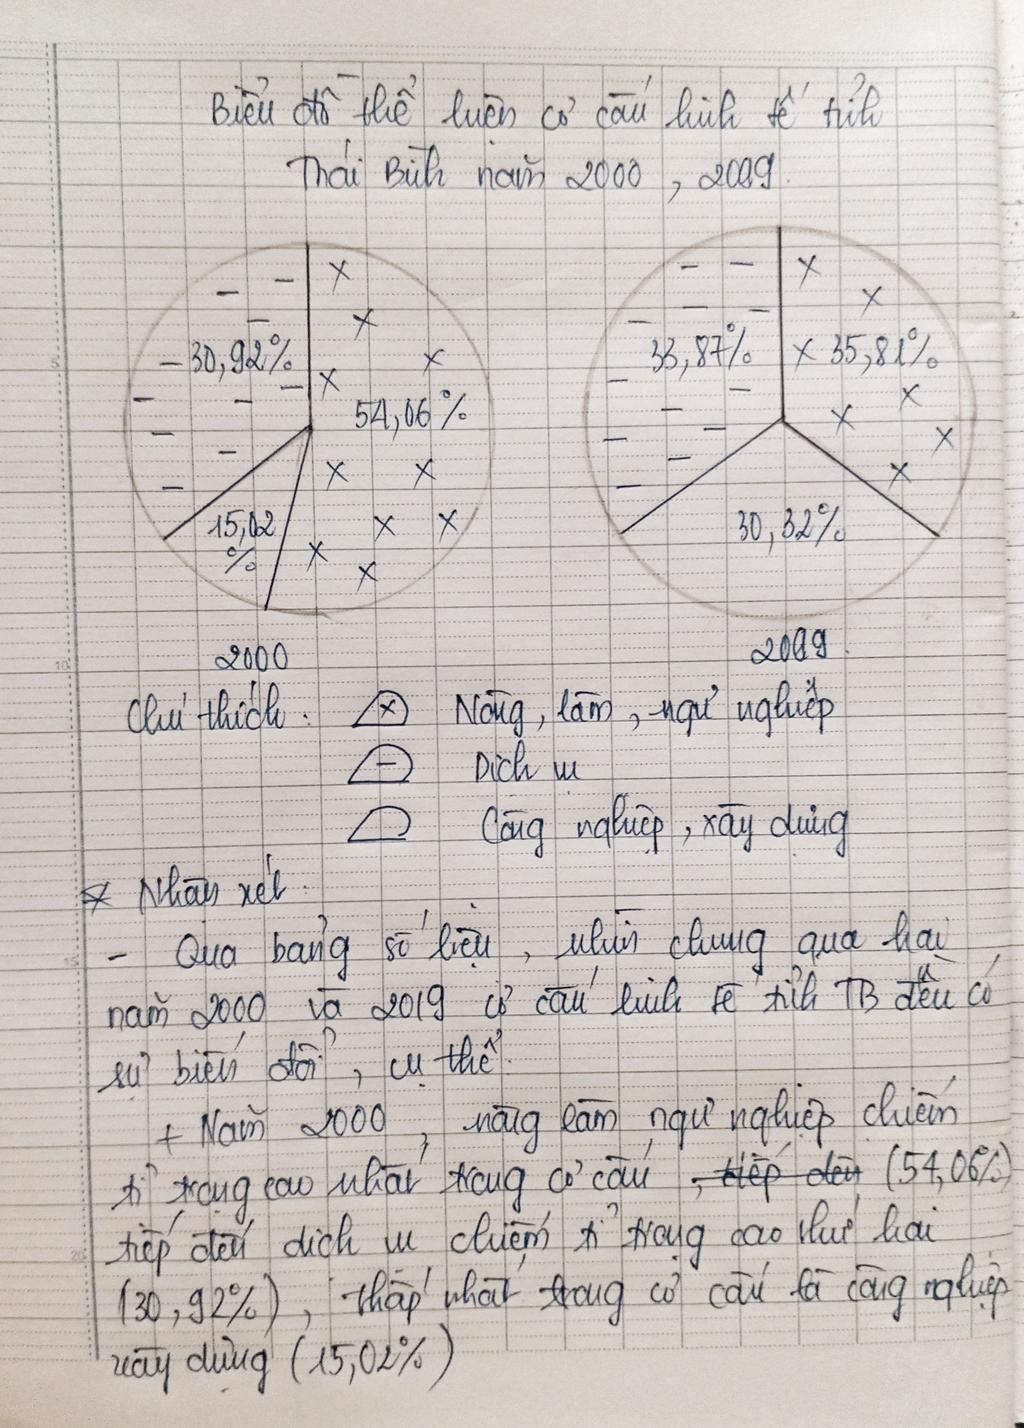 Biểu đồ thể hiện cơ cấu kinh tế tỉnh
Thái Bình năm 2000, 2019.
30,92%
54,06%
15,02
%
33,87%
35,81%
30,32%
2000
2019.
Chú thích:
x
Nông, lâm, ngư nghiệp
Dịch vụ
Công nghiệp, xây dựng
* Nhận xét:
- Qua bảng số liệu, nhìn chung qua hai
năm 2000 và 2019 cơ cấu kinh tế tỉnh TB đều có
sự biến đổi, cụ thể:
+ Năm 2000, nông lâm ngư nghiệp chiếm
tỉ trọng cao nhất trong cơ cấu, tiếp đến (54,06%)
tiếp đến dịch vụ chiếm tỉ trọng cao thứ hai
(30,92%), thấp nhất trong cơ cấu là công nghiệp
xây dựng (15,02%)